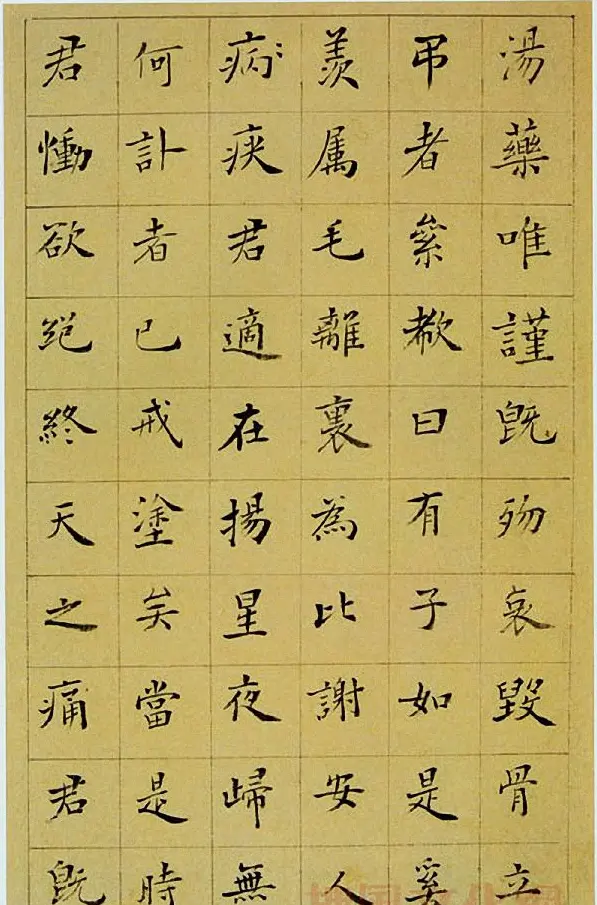 湯藥唯謹既歾哀毀骨立
弔者絫欷曰有子如是奚
羨属毛離裏為比謝安人
病疾君適在揚星夜歸無
何訃者已戒塗矣當是時
君慟欲絕終天之痛君既